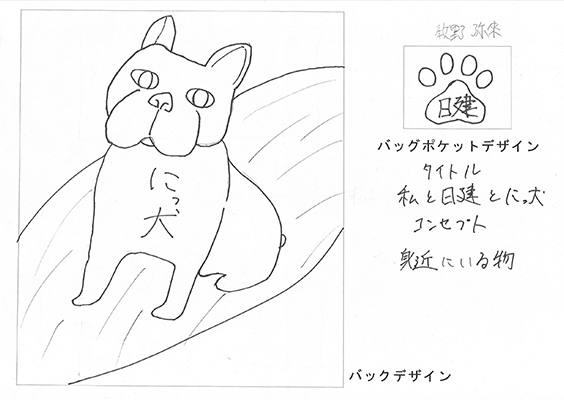 牧野 弥来
日建
バッグポケットデザイン
タイトル
私と日建とにっ犬
コンセプト
身近にいる物
にっ犬
バックデザイン